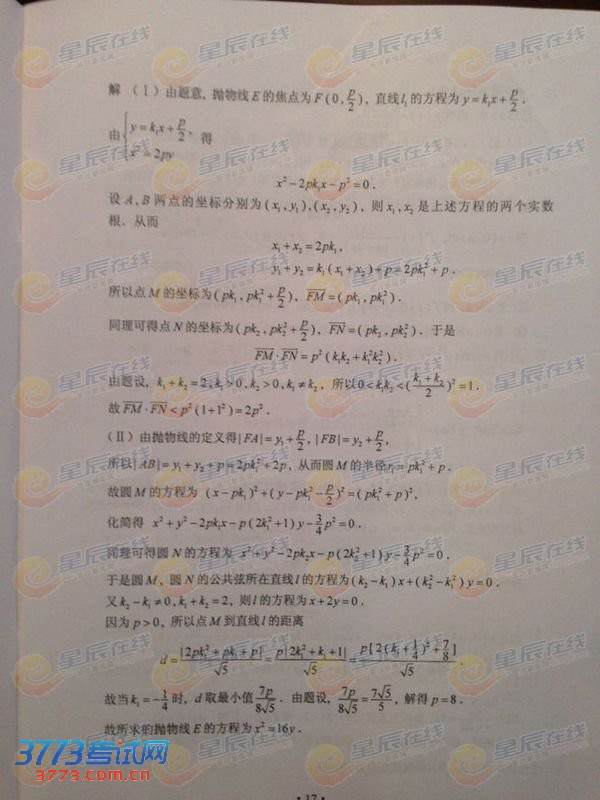 解 (Ⅰ) 由题意, 抛物线 E 的焦点为 F(0, p/2), 直线 l₁ 的方程为 y = k₁x + p/2.
由 { y = k₁x + p/2, x² = 2py 得
x² − 2pk₁x − p² = 0.
设 A, B 两点的坐标分别为 (x₁, y₁), (x₂, y₂), 则 x₁, x₂ 是上述方程的两个实数
根. 从而
x₁ + x₂ = 2pk₁,
y₁ + y₂ = k₁(x₁ + x₂) + p = 2pk₁² + p.
所以点 M 的坐标为 (pk₁, pk₁² + p/2), FM = (pk₁, pk₁²).
同理可得点 N 的坐标为 (pk₂, pk₂² + p/2), FN = (pk₂, pk₂²). 于是
FM · FN = p²(k₁k₂ + k₁²k₂²).
由题设, k₁ + k₂ = 2, k₁ > 0, k₂ > 0, k₁ ≠ k₂, 所以 0 < k₁k₂ < ((k₁ + k₂)/2)² = 1.
故 FM · FN < p²(1 + 1²) = 2p².
(Ⅱ) 由抛物线的定义得 |FA| = y₁ + p/2, |FB| = y₂ + p/2,
所以 |AB| = y₁ + y₂ + p = 2pk₁² + 2p, 从而圆 M 的半径 r₁ = pk₁² + p.
故圆 M 的方程为 (x − pk₁)² + (y − pk₁² − p/2)² = (pk₁² + p)²,
化简得 x² + y² − 2pk₁x − p(2k₁² + 1)y − 3/4 p² = 0.
同理可得圆 N 的方程为 x² + y² − 2pk₂x − p(2k₂² + 1)y − 3/4 p² = 0.
于是圆 M, 圆 N 的公共弦所在直线 l 的方程为 (k₂ − k₁)x + (k₂² − k₁²)y = 0.
又 k₂ − k₁ ≠ 0, k₁ + k₂ = 2, 则 l 的方程为 x + 2y = 0.
因为 p > 0, 所以点 M 到直线 l 的距离
d = |2pk₁² + pk₁ + p|/√5 = p|2k₁² + k₁ + 1|/√5 = p[2(k₁ + 1/4)² + 7/8]/√5.
故当 k₁ = −1/4 时, d 取最小值 7p/8√5. 由题设, 7p/8√5 = 7√5/5, 解得 p = 8.
故所求的抛物线 E 的方程为 x² = 16y.
3773考试网
3773.com.cn
• 17 •
星辰在线